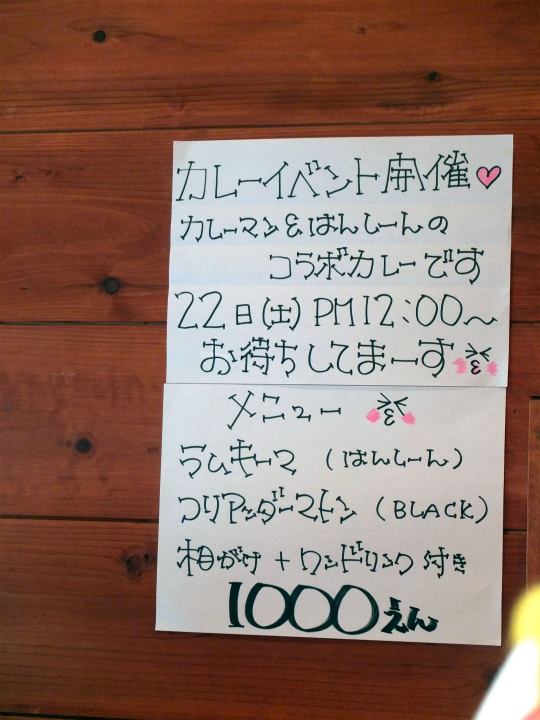 カレーイベント開催♡
カレーマン&ばんしーんの
コラボカレーです
22日(土)PM12:00〜
お待ちしてまーす
メニュー
ラムキーマ(ばんしーん)
コリアンダーマトン(BLACK)
相がけ+ワンドリンク付き
1000えん